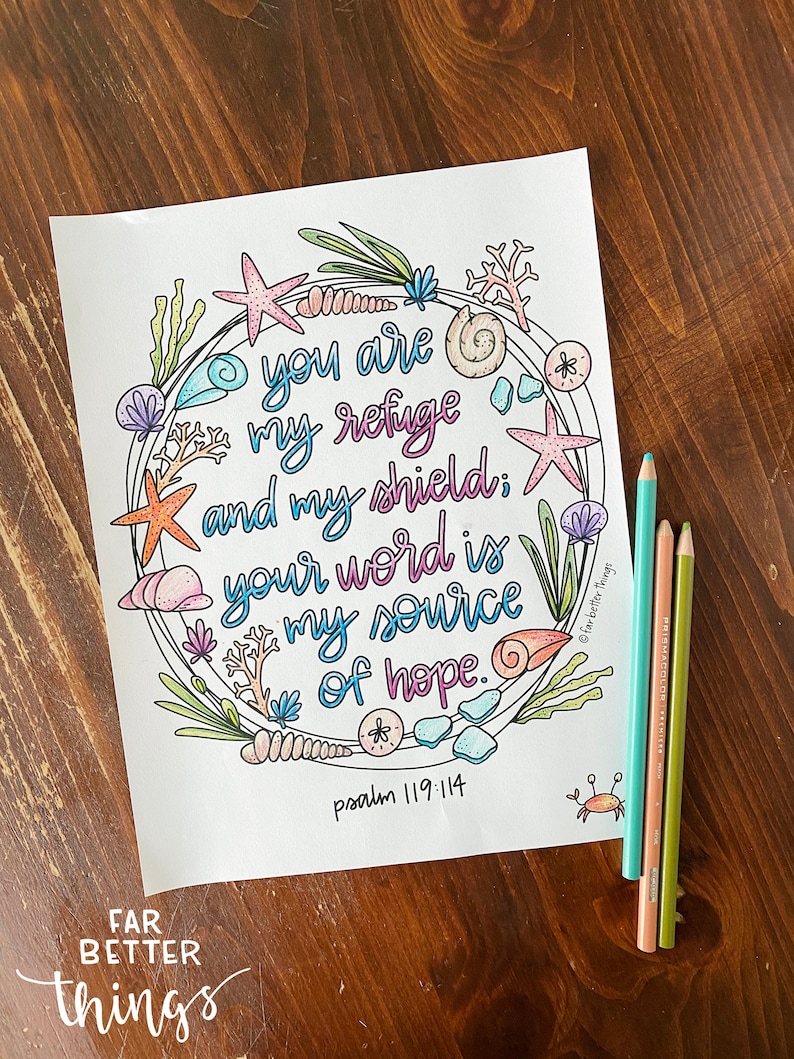 you are
my refuge
and my shield;
your word is
my source
of hope.
©far better things
psalm 119:114
PRISMACOLOR PREMIER
FAR
BETTER
things